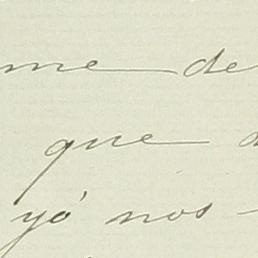 me de
que
yó nos